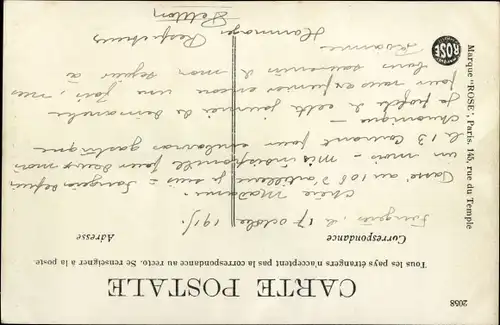 2058
CARTE POSTALE
Tous les pays étrangers n'acceptent pas la correspondance au recto. Se renseigner à la poste.
Correspondance
Adresse
le 17 octobre 191
Chère Madame.
Passé au 106 d'artillerie je suis à depuis
un mois - mis indisponible pour deux mois
le 13 Courant pour embarras gastrique
chronique - 
Je profite de cette journée de dimanche
pour vous exprimer encore une fois, mes
bons souvenirs de mon séjour à
Hommages Respectueux
Marque "ROSE", Paris. 145, rue du Temple
ROSE